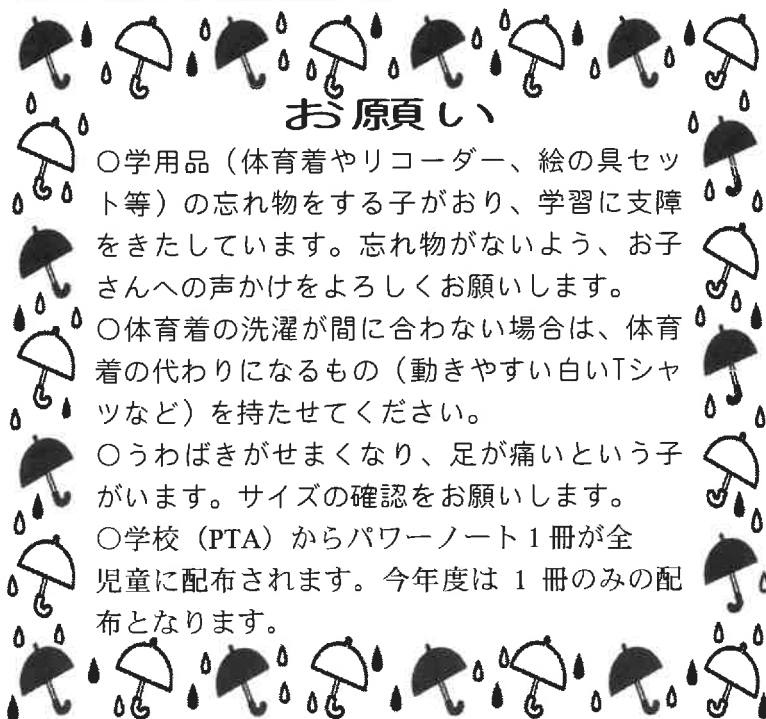 お願い
○学用品（体育着やリコーダー、絵の具セッ
ト等）の忘れ物をする子がおり、学習に支障
をきたしています。忘れ物がないよう、お子
さんへの声かけをよろしくお願いします。
○体育着の洗濯が間に合わない場合は、体育
着の代わりになるもの（動きやすい白いTシャ
ツなど）を持たせてください。
○うわばきがせまくなり、足が痛いという子
がいます。サイズの確認をお願いします。
○学校（PTA）からパワーノート1冊が全
児童に配布されます。今年度は 1 冊のみの配
布となります。